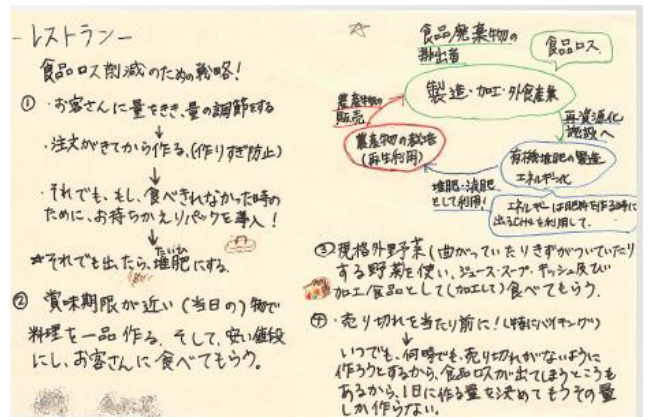 -レストラン-
食品ロス削減のための戦略!
① ・お客さんに量をきき、量の調節をする
↓
・注文がきてから作る、(作りすぎ防止)
↓
・それでも、もし、食べきれなかった時の
ために、お持ちかえりパックを導入!
↓
☆それでも出たら、堆肥にする。
たいひ
② 賞味期限が近い(当日の)物で
料理を一品作る。そして、安い値段
にし、お客さんに食べてもらう。
☆
食品廃棄物の
排出者
食品ロス
製造・加工・外食産業
農産物の
販売
再資源化
施設へ
農産物の栽培
(再生利用)
有機堆肥の製造
エネルギー化
堆肥・減肥
として利用!
エネルギーは肥料を作る時に
出るCH4を利用して.
③規格外野菜(曲がっていたりきずがついていたり
する野菜を使い、ジュース・スープ・キッシュ及び
加工食品として(加工して)食べてもらう.
④・売り切れを当たり前に!(特にバイキング)
↓
いつでも、何時でも、売り切れがないように
作ろうとするから、食品ロスが出てしまうところも
あるから、1日に作る量を決めてもうその量
しか作らない.